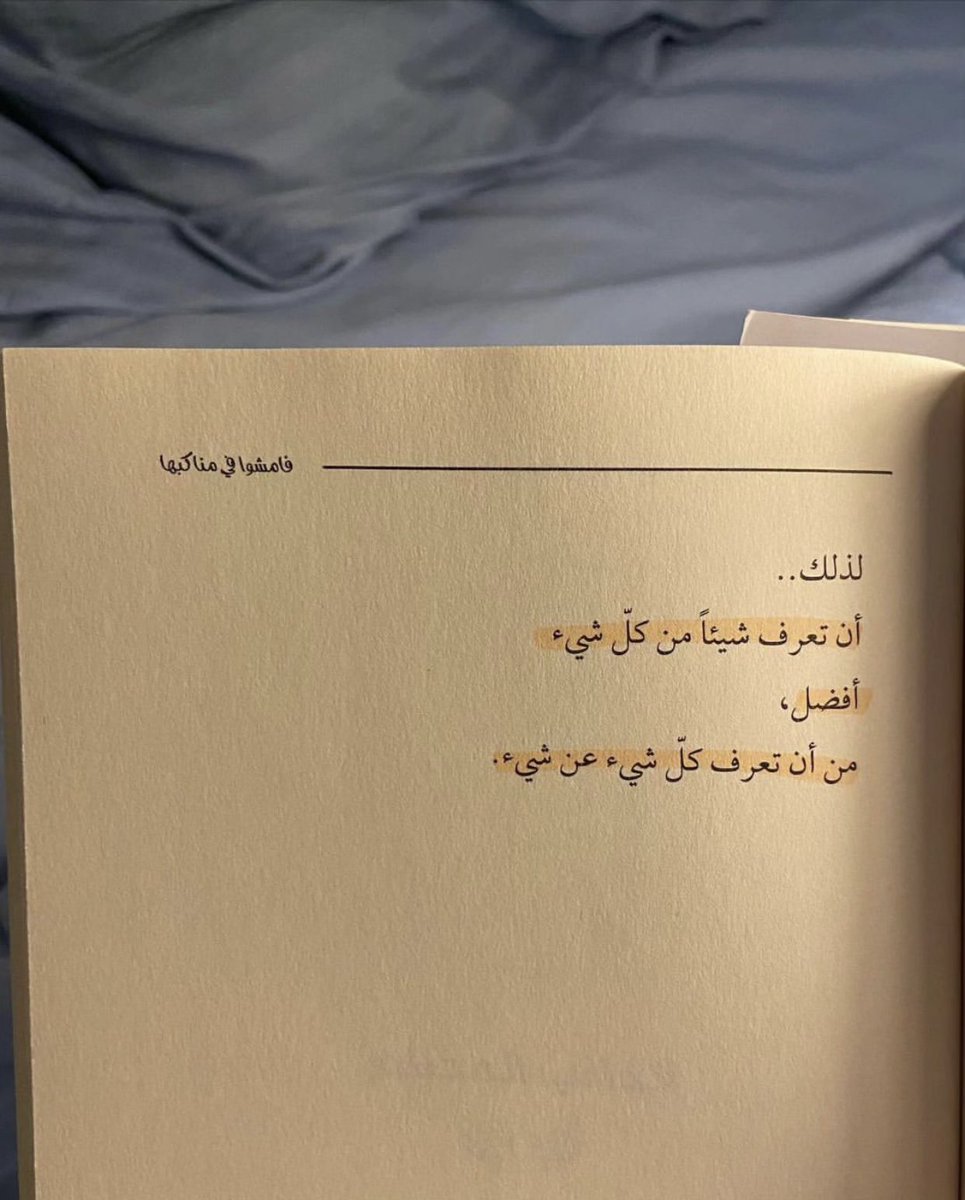 فامشوا في مناكبها
لذلك..
أن تعرف شيئاً من كلّ شيء
أفضل،
من أن تعرف كلّ شيء عن شيء.